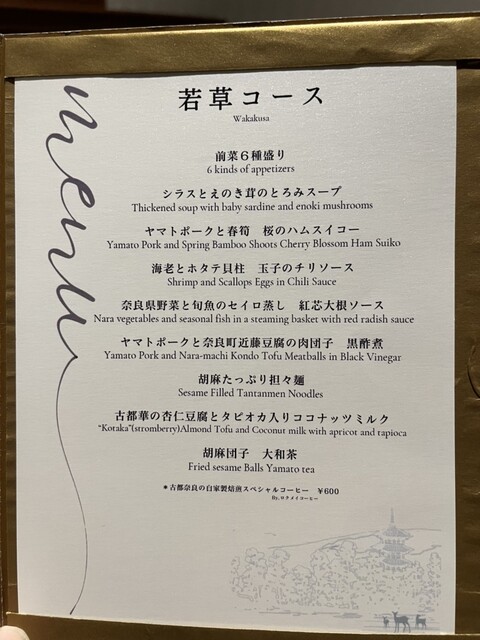 menu
若草コース
Wakakusa
前菜６種盛り
6 kinds of appetizers
シラスとえのき茸のとろみスープ
Thickened soup with baby sardine and enoki mushrooms
ヤマトポークと春筍　桜のハムスイコー
Yamato Pork and Spring Bamboo Shoots Cherry Blossom Ham Suiko
海老とホタテ貝柱　玉子のチリソース
Shrimp and Scallops Eggs in Chili Sauce
奈良県野菜と旬魚のセイロ蒸し　紅芯大根ソース
Nara vegetables and seasonal fish in a steaming basket with red radish sauce
ヤマトポークと奈良町近藤豆腐の肉団子　黒酢煮
Yamato Pork and Nara-machi Kondo Tofu Meatballs in Black Vinegar
胡麻たっぷり担々麺
Sesame Filled Tantanmen Noodles
古都華の杏仁豆腐とタピオカ入りココナッツミルク
“Kotaka”(stromberry)Almond Tofu and Coconut milk with apricot and tapioca
胡麻団子　大和茶
Fried sesame Balls Yamato tea
＊古都奈良の自家製焙煎スペシャルコーヒー　￥600
By.ロクメイコーヒー